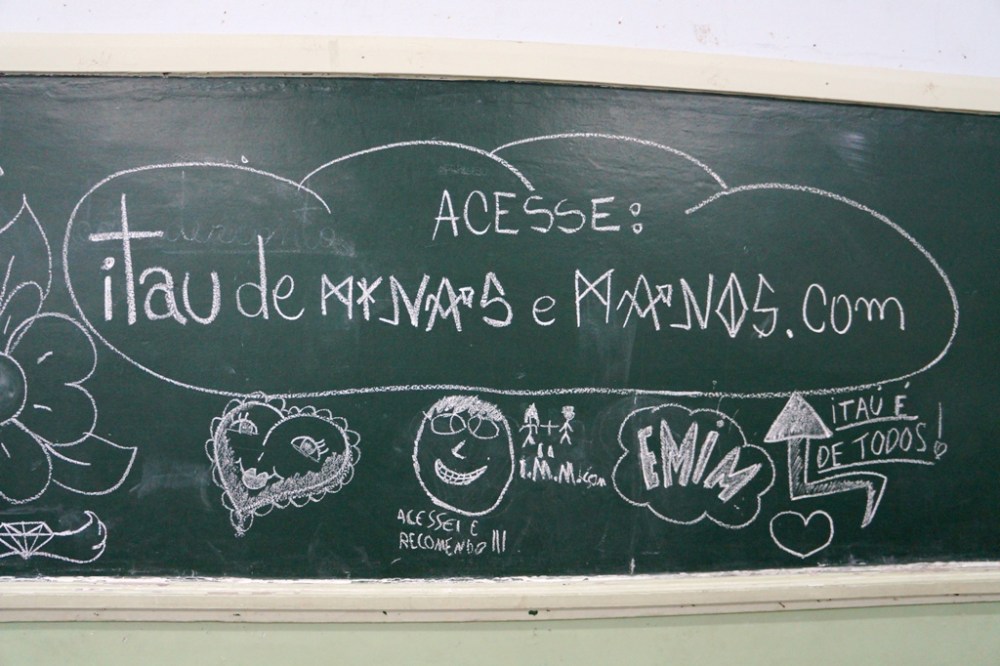 ACESSE:
itau de MINAS e MANOS.com
+
=
I.M.M.com
ACESSEI E
RECOMENDO!!!
EMIM
iTAÚ É
DE TODOS!